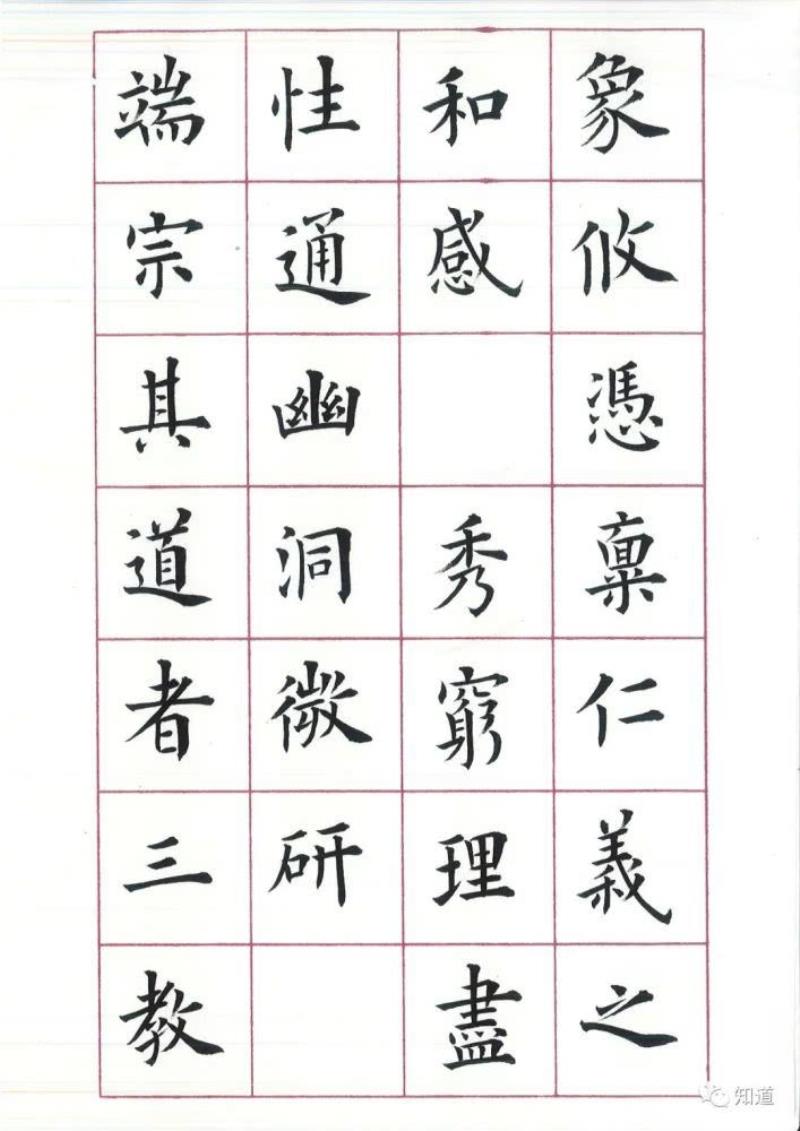 象攸憑禀仁義之
和感 秀窮理盡
性通幽洞微研
端宗其道者三教
知道